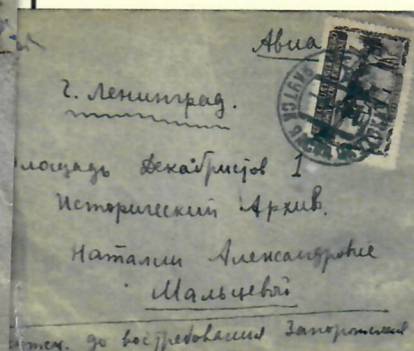 Авиа
г. Ленинград.
площадь Декабристов 1
Исторический Архив.
Наталии Александровне
Мальцевой
до востребования